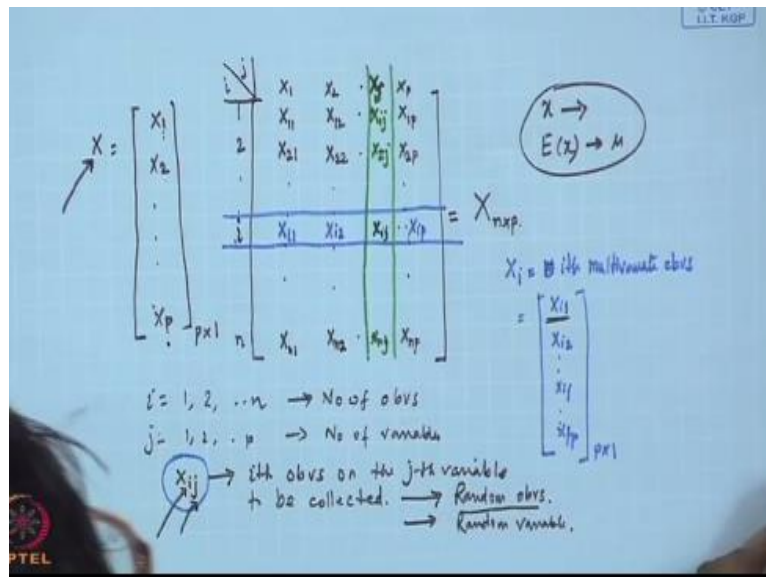 I.I.T. KGP
i j X1 X2 . Xj Xp
1 X11 X12 . X1j X1p
2 X21 X22 . X2j X2p
. . . .
i Xi1 Xi2 Xij .. Xip
. . . .
n Xn1 Xn2 . Xnj Xnp
= Xnxp.
X = [ X1
X2
.
.
.
Xp ] px1
x →
E(x) → μ
Xi = ith multivariate obvs
= [ Xi1
Xi2
:
Xij
.
Xip ] px1
i = 1, 2, ..n → No of obvs
j = 1, 2, .. p → No of variables
xij → ith obvs on the j-th variable
to be collected. → Random obvs.
→ Random variable.
PTEL